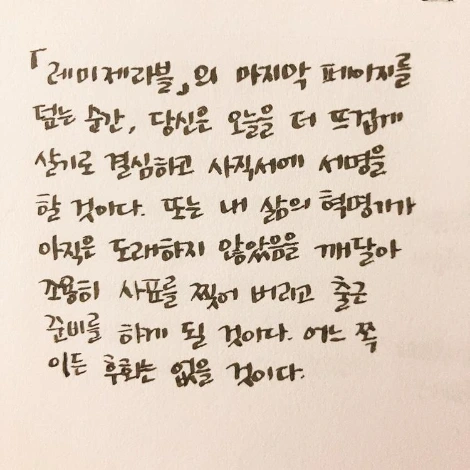 「레미제라블」의 마지막 페이지를
덮는 순간, 당신은 오늘을 더 뜨겁게
살기로 결심하고 사직서에 서명을
할 것이다. 또는 내 삶의 혁명기가
아직은 도래하지 않았음을 깨달아
조용히 사표를 찢어 버리고 출근
준비를 하게 될 것이다. 어느 쪽
이든 후회는 없을 것이다.